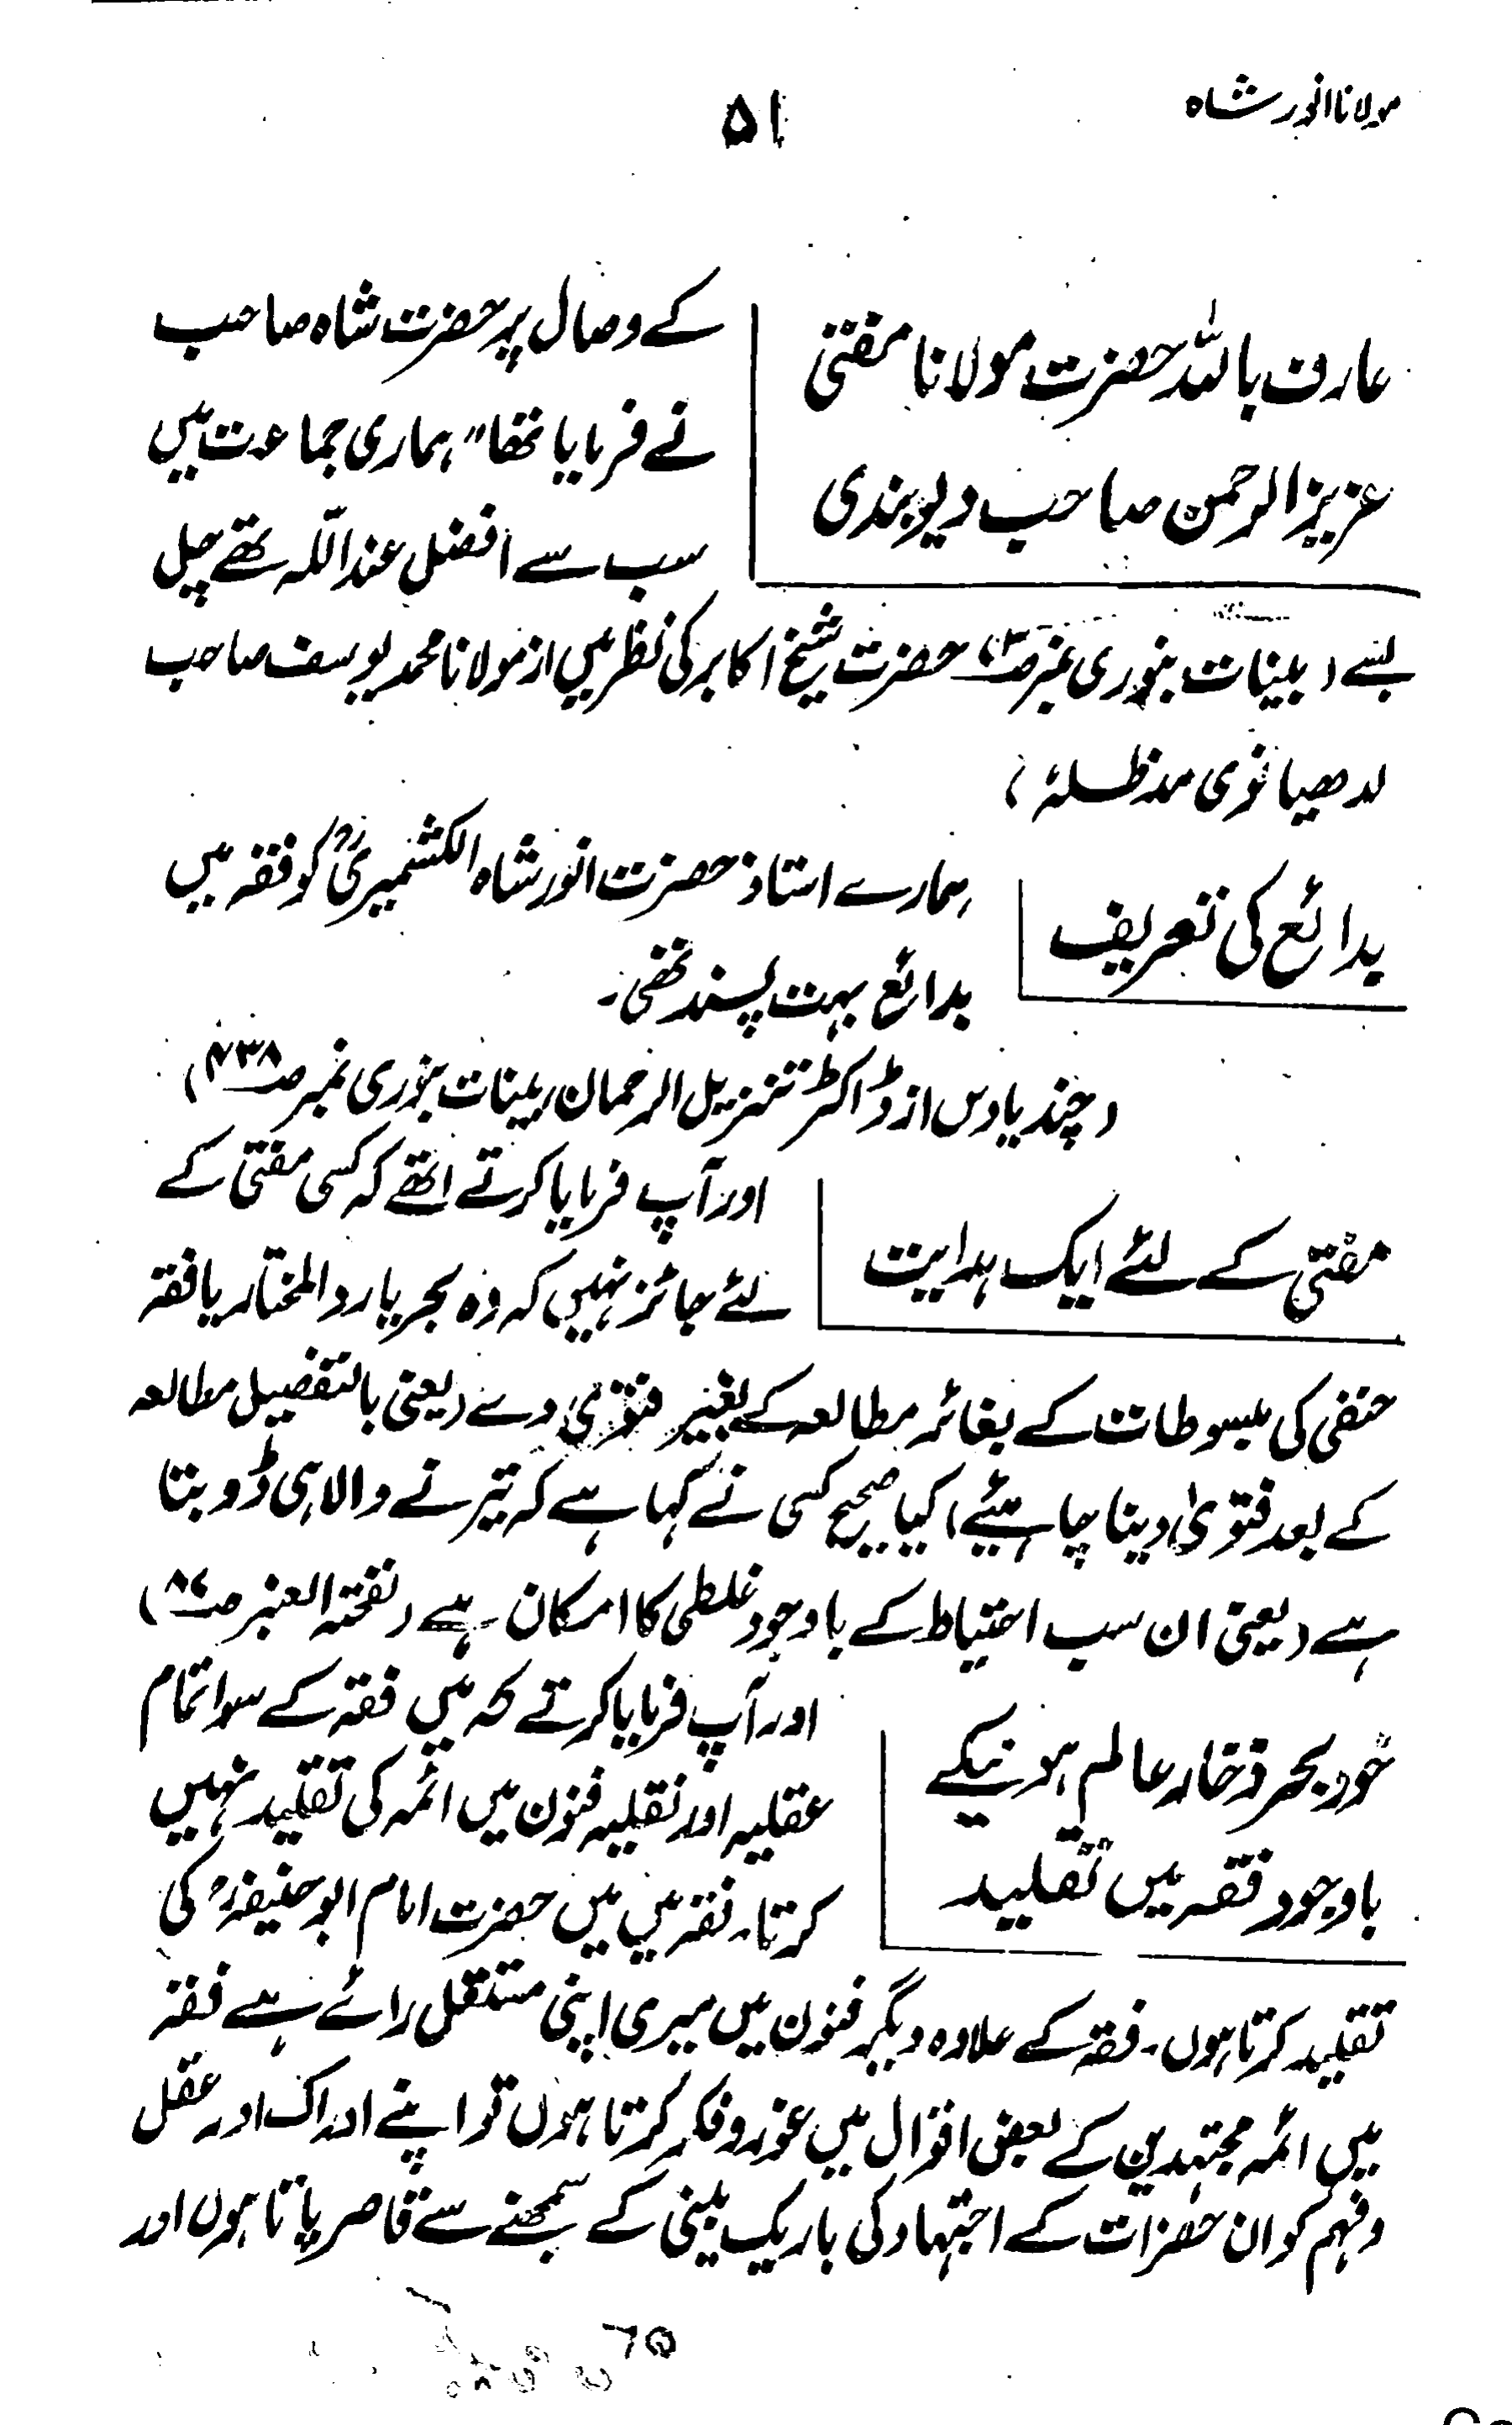 مولانا انور شاہ
۵۱
عارف باللہ حضرت مولانا مفتی
عزیز الرحمن صاحب دیوبندی
کے وصال پر حضرت شاہ صاحب
نے فرمایا تھا "ہماری جماعت میں
سب سے افضل عند اللہ تھے چل
بسے (بینات بنوری نمبر حضرت شیخ اکابر کی نظر میں از مولانا محمد یوسف صاحب
لدھیانوی مدظلہٗ)
بدائع کی تعریف
ہمارے استاذ حضرت انور شاہ الکشمیریؒ کو فقہ میں
بدائع بہت پسند تھی۔
(چند یادیں از ڈاکٹر تنزیل الرحمان (بینات بنوری نمبر صـ۷۳۸)
مفتی کے لئے ایک ہدایت
اور آپ فرمایا کرتے تھے کہ کسی مفتی کے
لئے جائز نہیں کہ وہ بحر یا رد المختار یا فقہ
حنفی کی مبسوطات کے بغائر مطالعہ کے بغیر فتویٰ دے (یعنی بالتفصیل مطالعہ
کے بعد فتویٰ دینا چاہئیے) کیا صحیح کسی نے کہا ہے کہ تیرنے والا ہی ڈوبتا
ہے (یعنی ان سب احتیاط کے باوجود غلطی کا امکان ہے (نفحتہ العنبر صـ۸۷)
خود بحر ذخار عالم ہونیکے
باوجود فقہ میں تقلید
اور آپ فرمایا کرتے کہ میں فقہ کے سوا تمام
عقلیہ اور نقلیہ فنون میں ائمہ کی تقلید نہیں
کرتا۔ فقہ میں میں حضرت امام ابو حنیفہؒ کی
تقلید کرتا ہوں۔ فقہ کے علاوہ دیگر فنون میں میری اپنی مستقل رائے ہے فقہ
میں ائمہ مجتہدین کے بعض اقوال میں غور و فکر کرتا ہوں تو اپنے ادراک اور عقل
و فہم کو ان حضرات کے اجتہاد کی باریک بینی کے سمجھنے سے قاصر پاتا ہوں اور